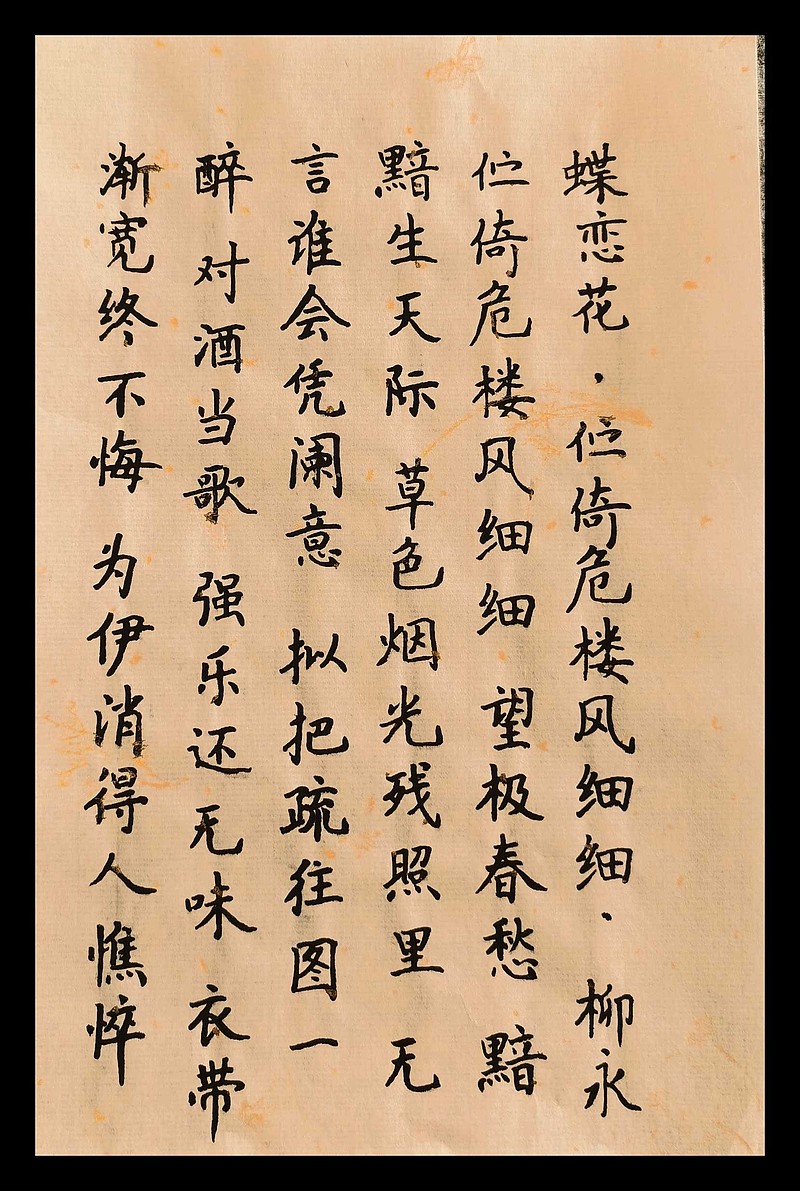 蝶恋花·伫倚危楼风细细·柳永
伫倚危楼风细细 望极春愁 黯
黯生天际 草色烟光残照里 无
言谁会凭阑意 拟把疏往图一
醉 对酒当歌 强乐还无味 衣带
渐宽终不悔 为伊消得人憔悴